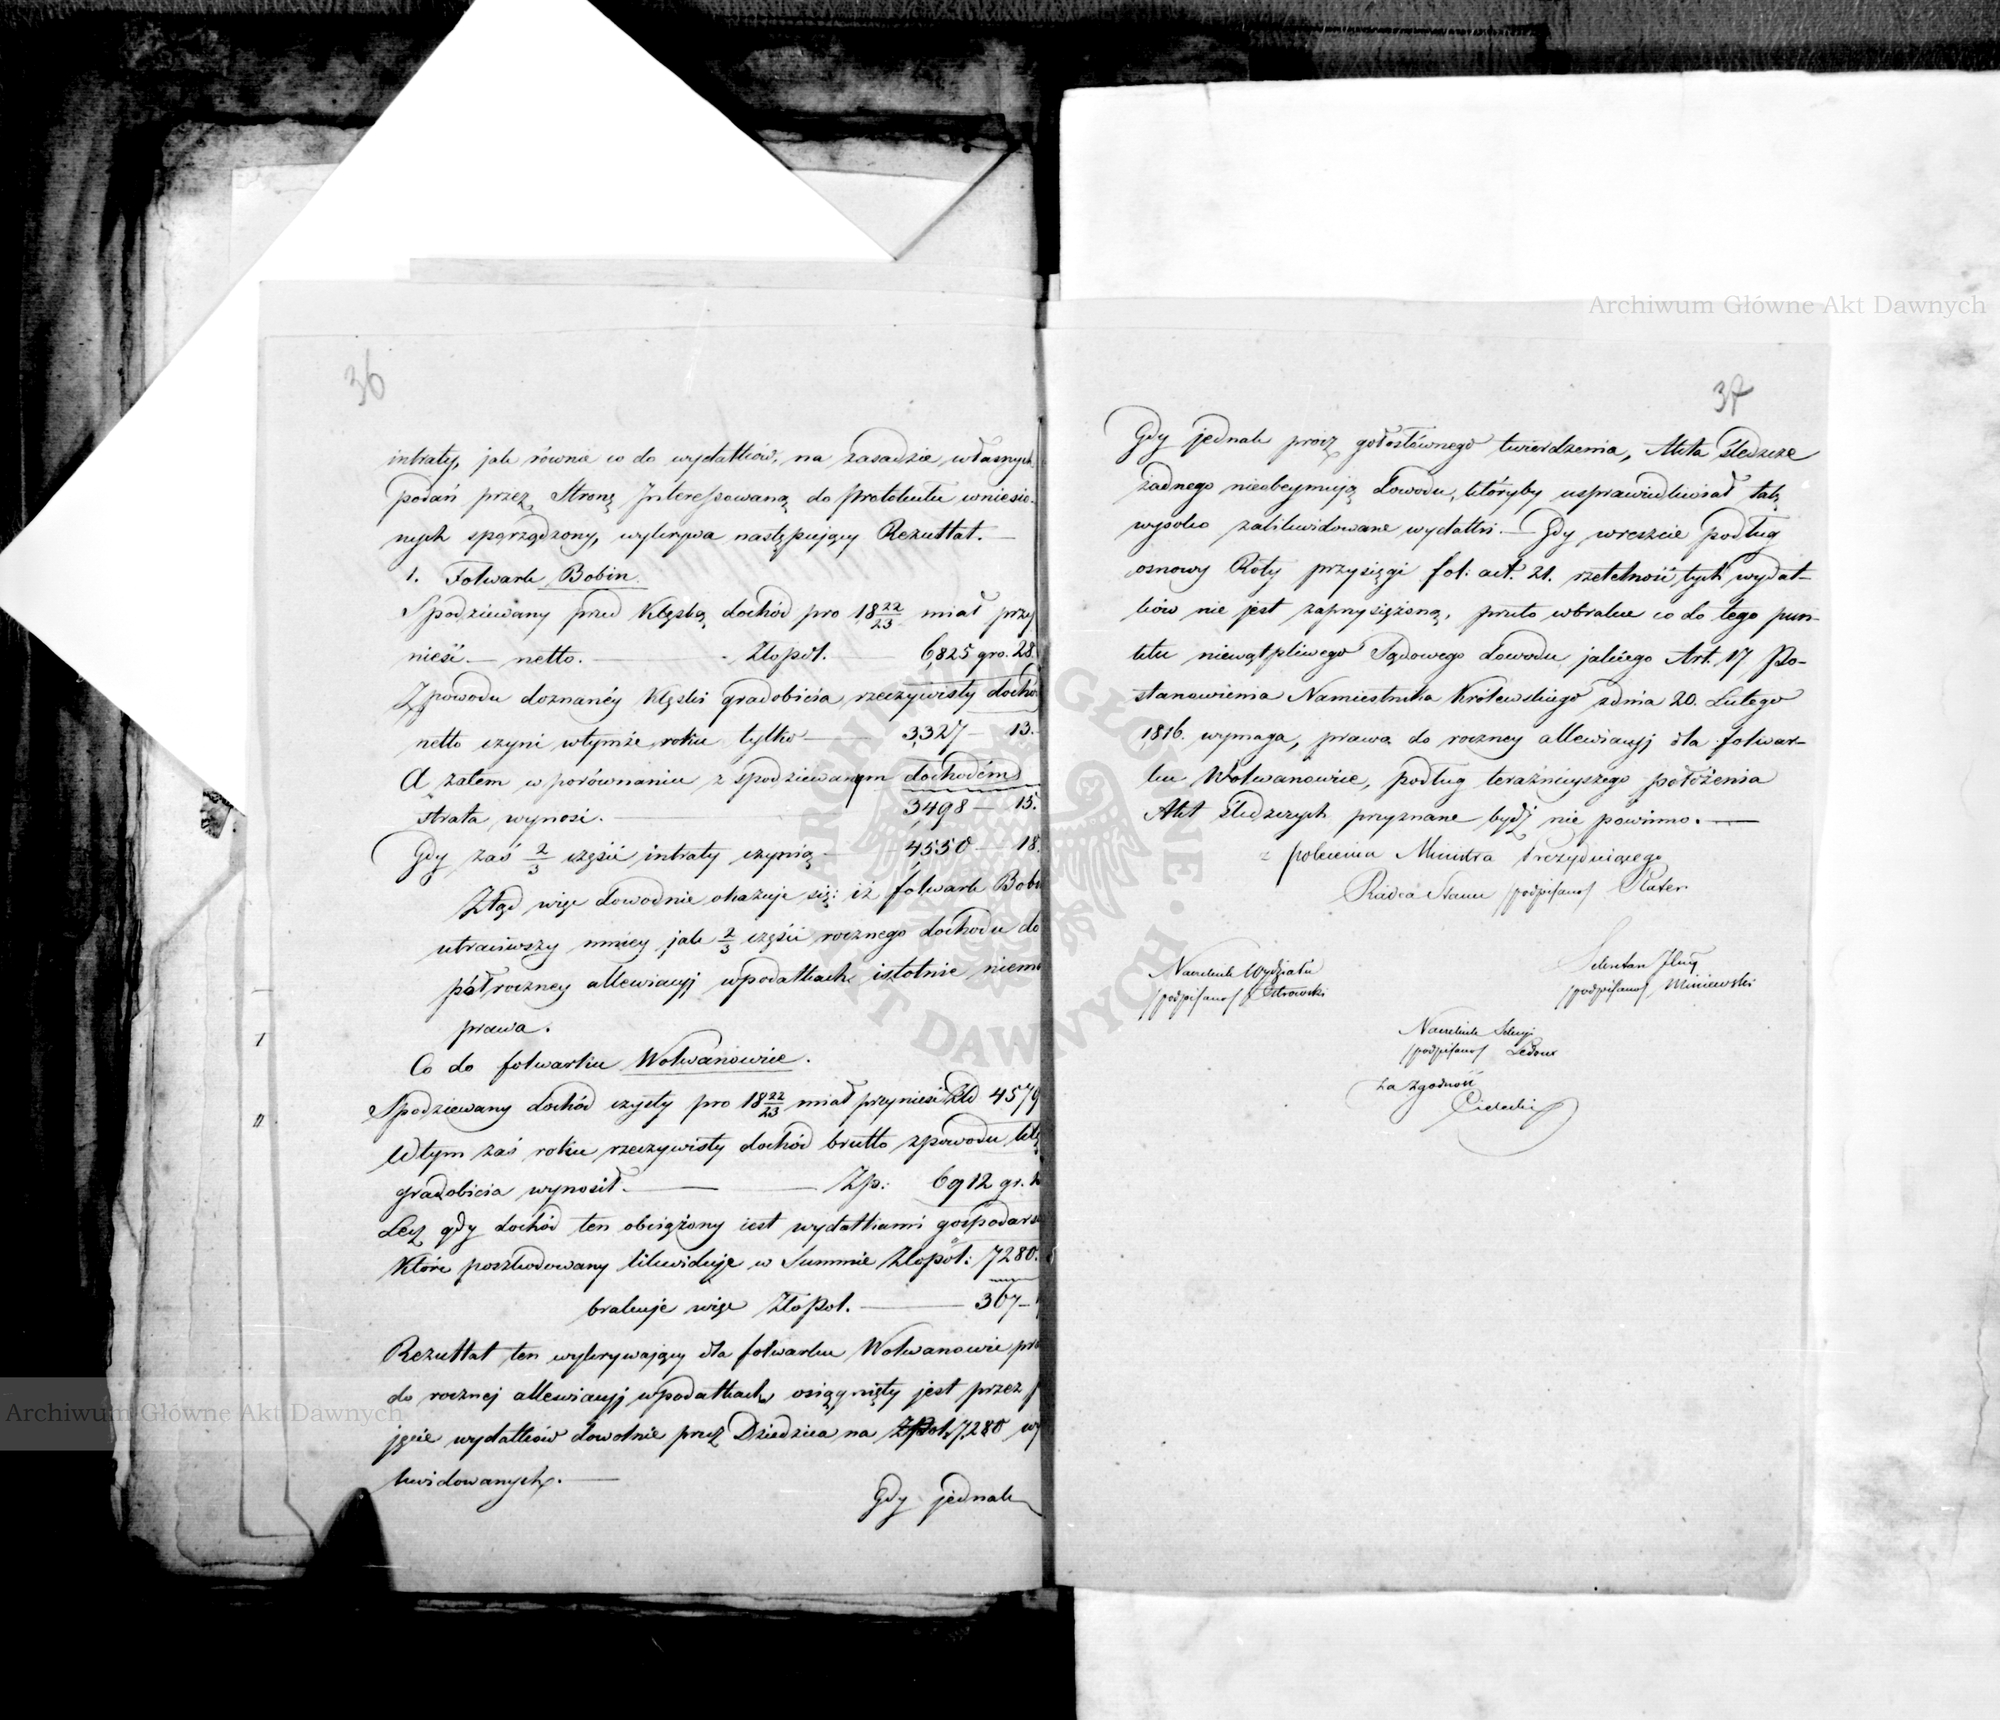 36
intraty, jak równie co do wydatków, na zasadzie własnych
podań przez Stronę Interessowaną do Protokułu wniesio-
nych sporządzony, wykrywa następujący Rezultat. —
1. Folwark Bobin.
Spodziewany przed Klęską dochód pro 18 22/23 miał przy
nieść. — netto. — Złopol. 6,825 gro. 28.
Z powodu doznanéy Klęski gradobicia rzeczywisty dochó
netto czyni wtymże roku tylko — 3,327 — 13.
A zatem w porównaniu z spodziewanym dochodem
strata wynosi. — 3,498 — 15.
Gdy zaś 2/3 części intraty czynią — 4,550 — 18.
Ztąd więc dowodnie okazuje się: iż folwark Bobi
utraciwszy mniey jak 2/3 części rocznego dochodu do
półroczney allewiacyj wpodatkach istotnie niema
prawa.
Co do folwarku Wolwanowice.
Spodziewany dochód czysty pro 18 22/23 miał przynieść Złł 4579
Wtym zaś roku rzeczywisty dochód brutto zpowodu klę
gradobicia wynosił. — Zp: 6912 gr.
Lecz gdy dochód ten obciążony iest wydatkami gospodars
Które poszkodowany likwiduje w Summie Złopol: 7280.
brakuje więc Złopol. — 367 —
Rezultat ten wykrywający dla folwarku Wolwanowic pra
do rocznej allewiacyj wpodatkach osiągnięty jest przez
jęcie wydatków dowolnie przez Dziedzica na ZPol. 7,280 wy
kwidowanych. —
Gdy jednak
37
Gdy jednak prócz gołosłównego twierdzenia, Akta śledcze
żadnego nieobeymują dowodu, któryby usprawiedliwiał tak
wysoko zalikwidowane wydatki. — Gdy wreszcie podług
osnowy Roty przysięgi fol: act. 21. rzetelność tych wydat-
ków nie jest zaprzysiężoną, przeto wbraku co do tego pun-
ktu niewątpliwego Sądowego dowodu jakiego Art. 17 Po-
stanowienia Namiestnika Królewskiego zdnia 20. Lutego
1816. wymaga, prawo do roczney allewiacyj dla folwar-
ku Wolwanowice, podług teraźnieyszego położenia
Akt śledczych przyznane bydź nie powinno. —
z polecenia Ministra Prezydującego
Radca Stanu /podpisano/ Plater.
Naczelnik Wydziału
/podpisano/ Ostrowski
Sekretarz Jlny
/podpisano/ Miniewski
Naczelnik Sekcyi
/podpisano/ Ledoux
za zgodność
Archiwum Główne Akt Dawnych
Archiwum Główne Akt Dawnych
ARCHIWUM GŁÓWNE AKT DAWNYCH